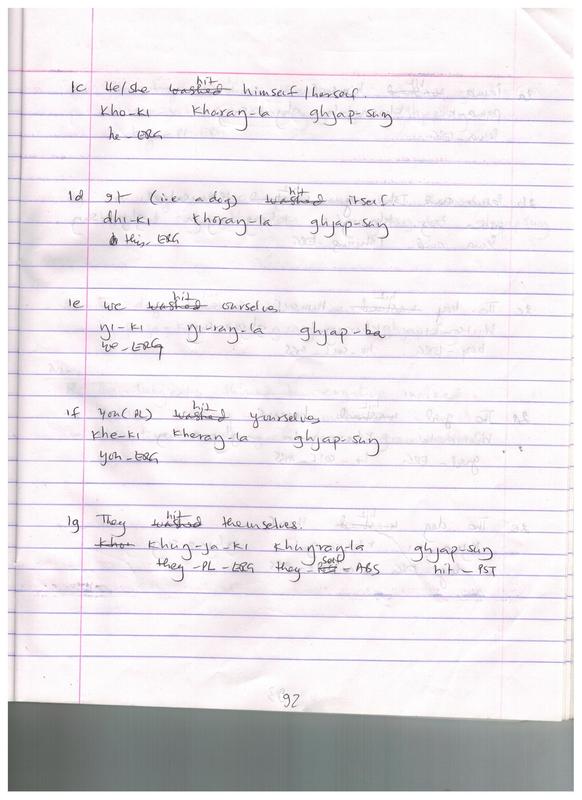 1c He/she washed hit himself/herself.
kho-ki khoraŋ-la ghjap-suŋ
he-ERG
1d It (i.e. a dog) washed hit itself
dhi-ki khoraŋ-la ghjap-suŋ
this-ERG
1e We washed hit ourselves
ŋi-ki ŋi-raŋ-la ghjap-ba
we-ERG
1f You(PL) washed hit yourselves
khe-ki kheraŋ-la ghjap-suŋ
you-ERG
1g They washed hit themselves.
khuŋ-ja-ki khuŋraŋ-la ghjap-suŋ
they-PL-ERG they-self-ABS hit-PST
92